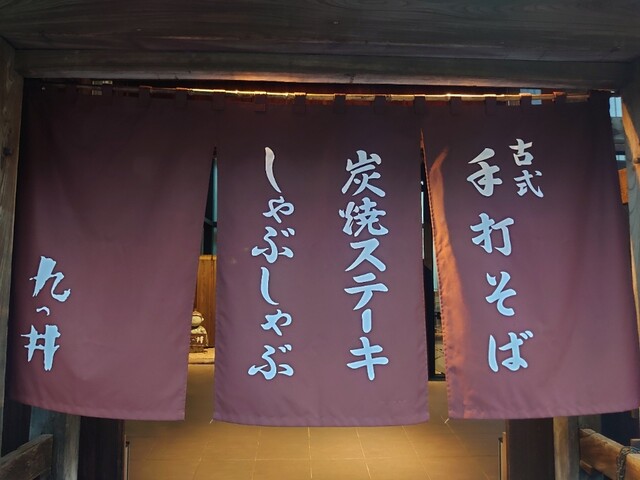 古式
手打そば
炭焼ステーキ
しゃぶしゃぶ
九っ井